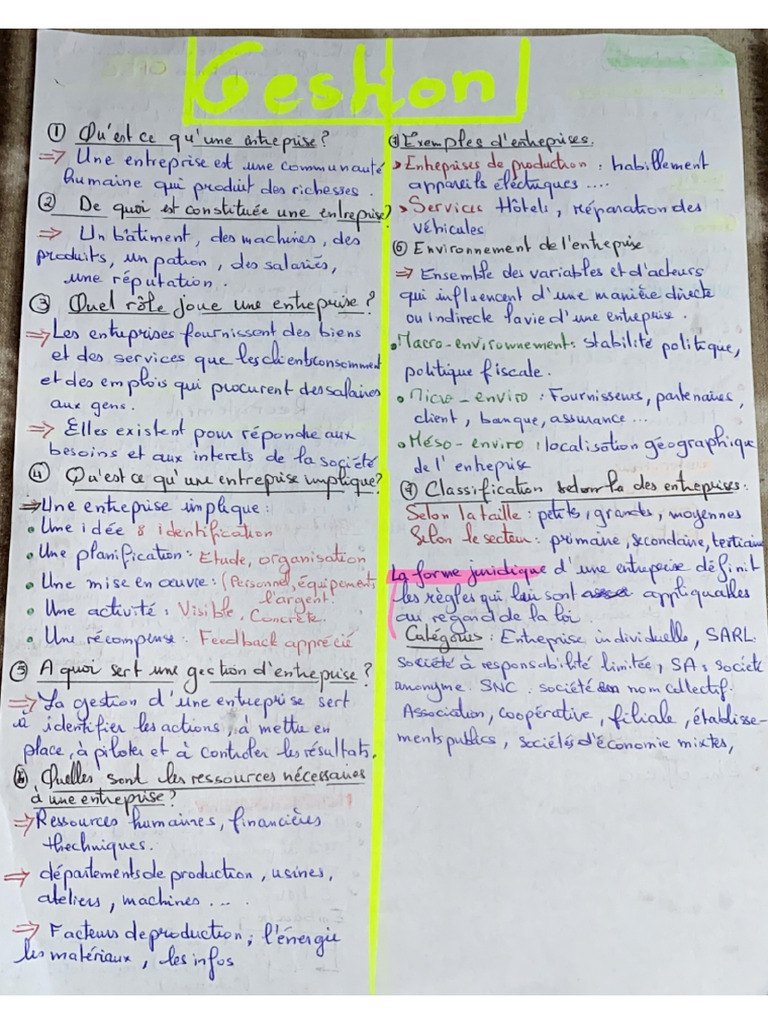 Gestion
① Qu'est ce qu'une entreprise?
⇒ Une entreprise est une communauté
humaine qui produit des richesses.
② De quoi est constituée une entreprise?
⇒ Un bâtiment, des machines, des
produits, un patron, des salariés,
une réputation.
③ Quel rôle joue une entreprise?
⇒ Les entreprises fournissent des biens
et des services que les clients consomment
et des emplois qui procurent des salaires
aux gens.
⇒ Elles existent pour répondre aux
besoins et aux interets de la société
④ Qu'est ce qu'une entreprise implique?
⇒ Une entreprise implique:
• Une idée & identification
• Une planification: Etude, organisation
• Une mise en œuvre: (Personnel, équipements
l'argent.
• Une activité: Visible, Concrète.
• Une récompense: Feedback apprécié
⑤ A quoi sert une gestion d'entreprise?
⇒ La gestion d'une entreprise sert
à identifier les actions, à mettre en
place, à piloter et à controler les résultats.
Quelles sont les ressources nécessaires
à une entreprise?
⇒ Ressources humaines, financières
thechniques.
⇒ départements de production, usines,
ateliers, machines ....
⇒ Facteurs de production; l'énergie
les matériaux, les infos
Exemples d'entreprises.
> Entreprises de production: habillement
appareils électriques ....
> Services Hôtels, réparation des
véhicules
⑥ Environnement de l'entreprise
⇒ Ensemble des variables et d'acteurs
qui influencent d'une manière directe
ou indirecte la vie d'une entreprise.
• Macro-environnement: stabilité politique,
politique fiscale.
• Micro-enviro: Fournisseurs, partenaires,
client, banque, assurance...
• Méso-enviro: localisation géographique
de l'entreprise
⑦ Classification selon la des entreprises:
Selon la taille: petites, grandes, moyennes
Selon le secteur: primaire, secondaire, tertiaire
La forme juridique d'une entreprise définit
les règles qui leu sont appliquables
au regard de la loi.
Catégories: Entreprise individuelle, SARL:
société à responsabilité limitée, SA: société
anonyme. SNC: société en nom collectif.
Association, coopérative, filiale, établisse-
ments publics, sociétés d'économie mixtes,